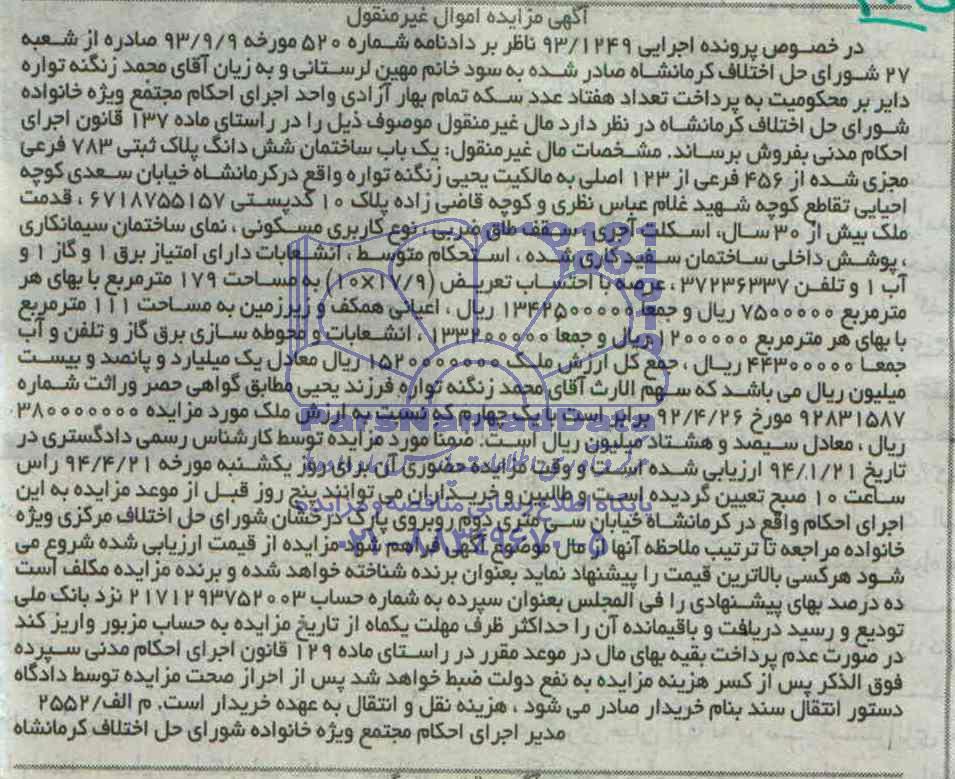 آگهی مزایده اموال غیرمنقول
در خصوص پرونده اجرایی ۹۳/۱۲۴۹ ناظر بر دادنامه شماره ۵۲۰ مورخه ۹۳/۹/۹ صادره از شعبه
۲۷ شورای حل اختلاف کرمانشاه صادر شده به سود خانم مهین لرستانی و به زیان آقای محمد زنگنه تواره
دایر بر محکومیت به پرداخت تعداد هفتاد عدد سکه تمام بهار آزادی واحد اجرای احکام مجتمع ویژه خانواده
شورای حل اختلاف کرمانشاه در نظر دارد مال غیرمنقول موصوف ذیل را در راستای ماده ۱۳۷ قانون اجرای
احکام مدنی بفروش برساند. مشخصات مال غیرمنقول: یک باب ساختمان شش دانگ پلاک ثبتی ۷۸۳ فرعی
مجزی شده از ۴۵۶ فرعی از ۱۲۳ اصلی به مالکیت یحیی زنگنه تواره واقع درکرمانشاه خیابان سعدی کوچه
احیایی تقاطع کوچه شهید غلام عباس نظری و کوچه قاضی زاده پلاک ۱۰ کدپستی ۶۷۱۸۷۵۵۱۵۷ ، قدمت
ملک بیش از ۳۰ سال، اسکلت آجری، سقف طاق ضربی، نوع کاربری مسکونی ، نمای ساختمان سیمانکاری
، پوشش داخلی ساختمان سفید کاری شده ، استحکام متوسط ، انشعابات دارای امتیاز برق ۱ و گاز ۱ و
آب ۱ و تلفن ۳۷۲۳۶۳۳۷ ، عرصه با احتساب تعریض (۱۷/۹×۱۰) به مساحت ۱۷۹ مترمربع با بهای هر
مترمربع ۷۵۰۰۰۰۰ ریال و جمعا ۱۳۴۲۵۰۰۰۰۰ ریال ، اعیانی همکف و زیرزمین به مساحت ۱۱۱ مترمربع
با بهای هر مترمربع ۱۲۰۰۰۰۰ ریال و جمعا ۱۳۳۲۰۰۰۰۰ ، انشعابات و محوطه سازی برق گاز و تلفن و آب
جمعا ۴۴۳۰۰۰۰۰ ریال ، جمع کل ارزش ملک ۱۵۲۰۰۰۰۰۰۰ ریال معادل یک میلیارد و پانصد و بیست
میلیون ریال می باشد که سهم الارث آقای محمد زنگنه تواره فرزند یحیی مطابق گواهی حصر وراثت شماره
۹۲۸۳۱۵۸۷ مورخ ۹۲/۴/۲۶ برابر است با یک چهارم که نسبت به ارزش ملک مورد مزایده ۳۸۰۰۰۰۰۰۰
ریال ، معادل سیصد و هشتاد میلیون ریال است. ضمنا مورد مزایده توسط کارشناس رسمی دادگستری در
تاریخ ۹۴/۱/۲۱ ارزیابی شده است و وقت مزایده حضوری آن برای روز یکشنبه مورخه ۹۴/۴/۲۱ راس
ساعت ۱۰ صبح تعیین گردیده است و طالبین و خریداران می توانند پنج روز قبل از موعد مزایده به این
اجرای احکام واقع در کرمانشاه خیابان سی متری دوم روبروی پارک درخشان شورای حل اختلاف مرکزی ویژه
خانواده مراجعه تا ترتیب ملاحظه آنها از مال موضوع آگهی فراهم شود مزایده از قیمت ارزیابی شده شروع می
شود هرکسی بالاترین قیمت را پیشنهاد نماید بعنوان برنده شناخته خواهد شده و برنده مزایده مکلف است
ده درصد بهای پیشنهادی را فی المجلس بعنوان سپرده به شماره حساب ۲۱۷۱۲۹۳۷۵۲۰۰۳ نزد بانک ملی
تودیع و رسید دریافت و باقیمانده آن را حداکثر ظرف مهلت یکماه از تاریخ مزایده به حساب مزبور واریز کند
در صورت عدم پرداخت بقیه بهای مال در موعد مقرر در راستای ماده ۱۲۹ قانون اجرای احکام مدنی سپرده
فوق الذکر پس از کسر هزینه مزایده به نفع دولت ضبط خواهد شد پس از احراز صحت مزایده توسط دادگاه
دستور انتقال سند بنام خریدار صادر می شود ، هزینه نقل و انتقال به عهده خریدار است. م الف/۲۵۵۲
مدیر اجرای احکام مجتمع ویژه خانواده شورای حل اختلاف کرمانشاه
ParsNamadData
پایگاه اطلاع رسانی مناقصه و مزایده
۰۲۱-۸۸۳۴۹۶۷۰-۵